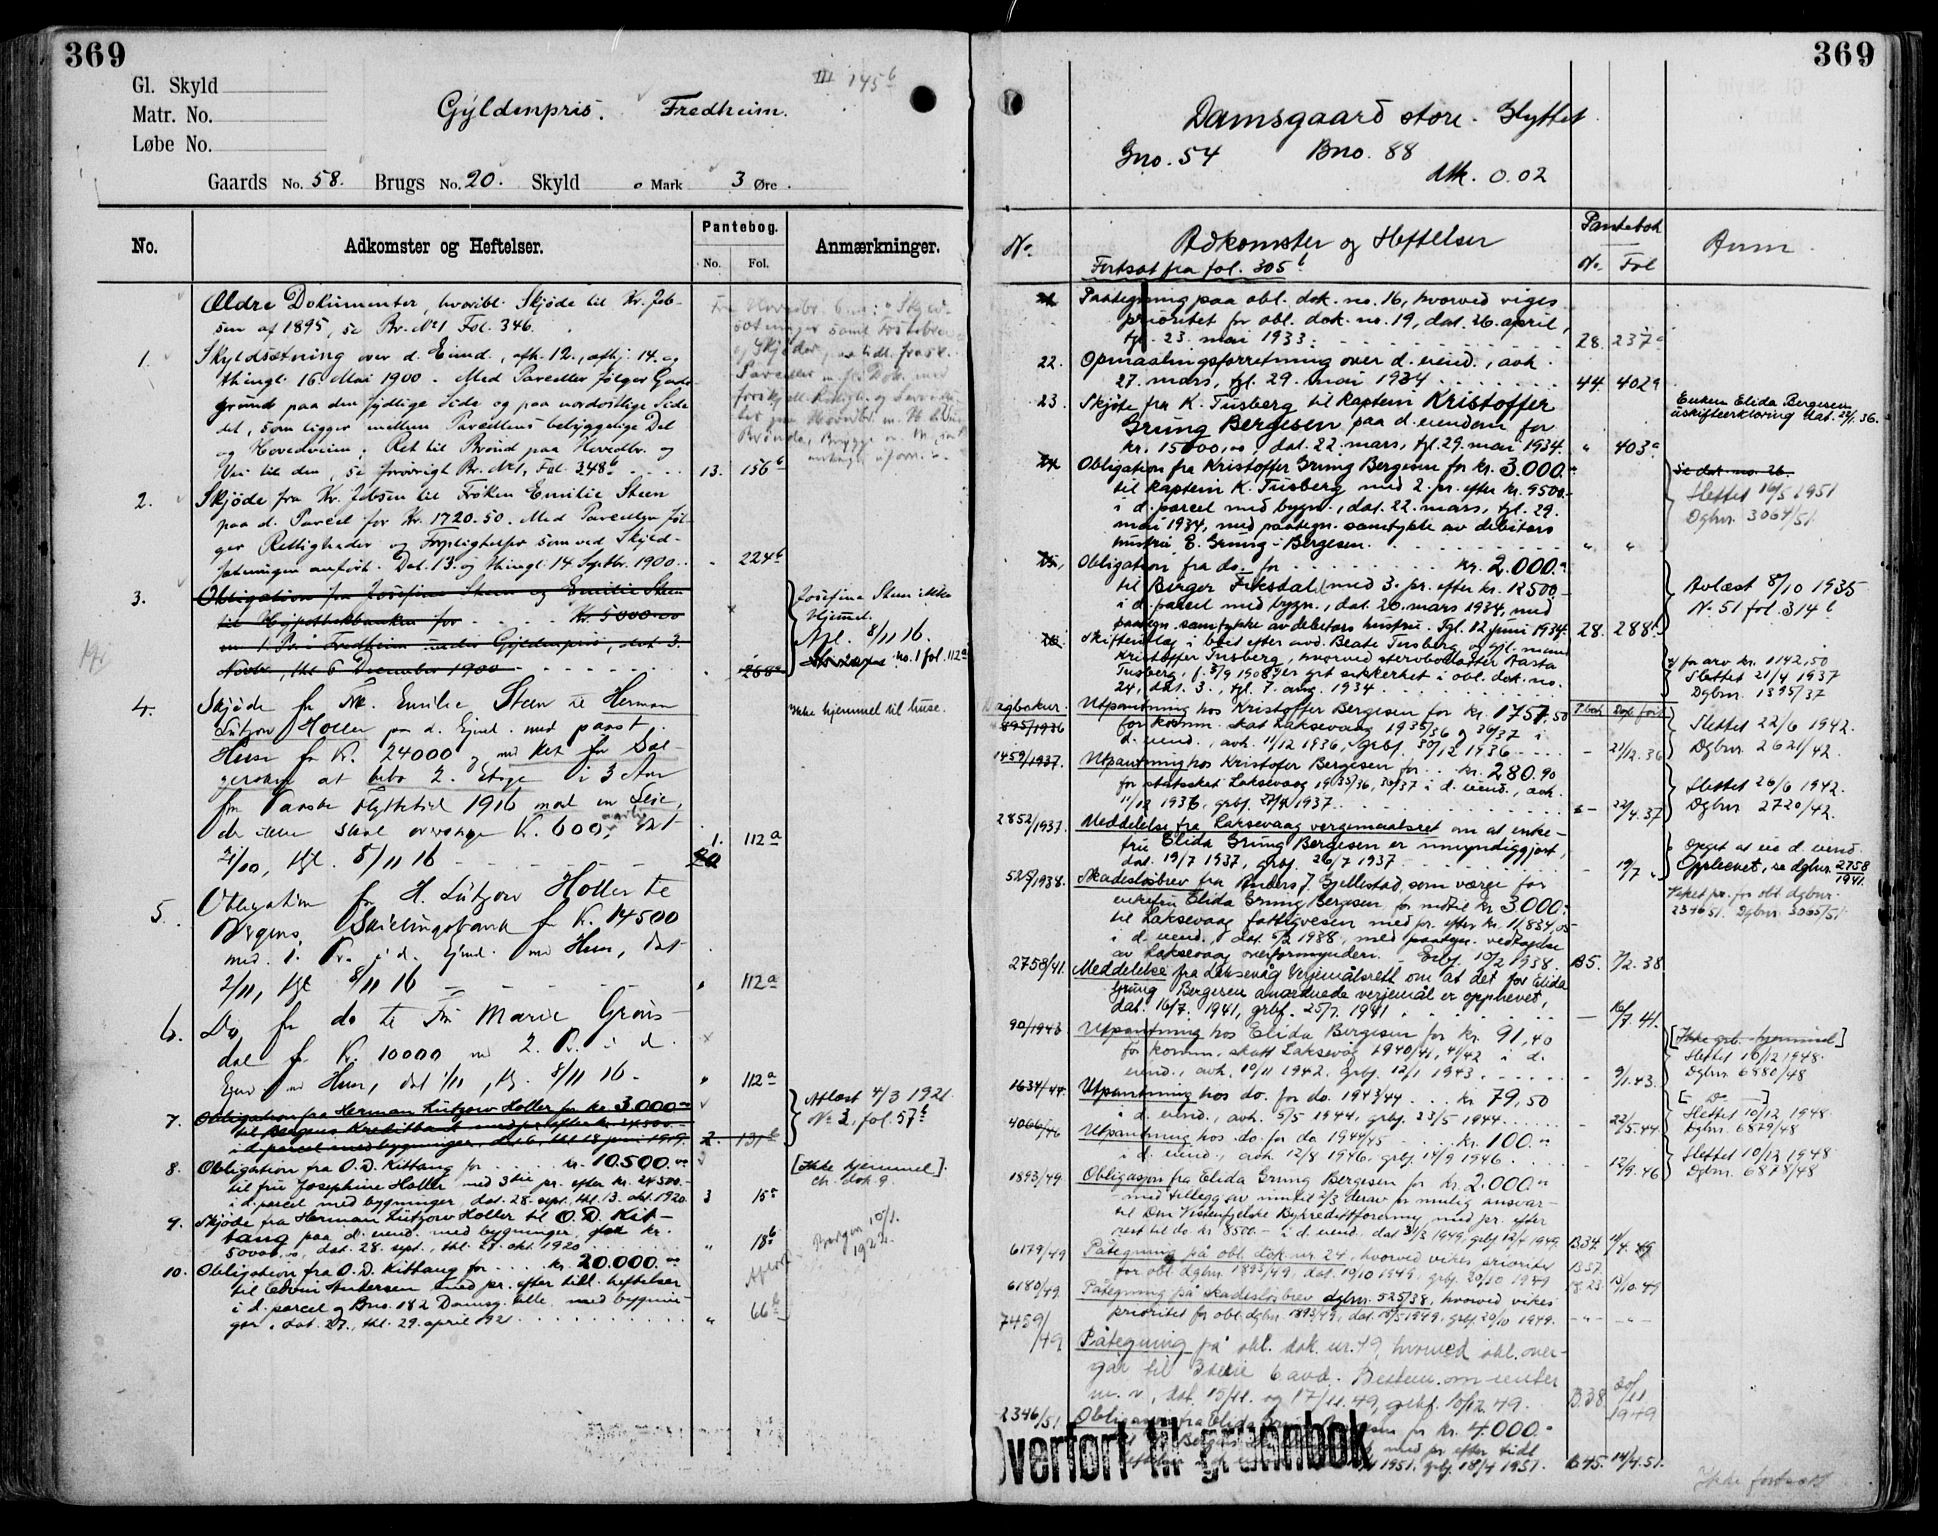 369
III 145 b
Gl. Skyld
Matr. No.
Løbe No.
Gyldenpris. Fredheim.
Gaards No. 58. Brugs No. 20. Skyld 0 Mark 3 Øre.
No.
Adkomster og Heftelser.
Pantebog.
No. Fol.
Anmærkninger.
Ældre Dokumenter, hvoribl. Skjøde til Kr. Jeb-
sen af 1895, se Br. No 1 Fol. 346.
1. Skyldsætning over d. Eiend., afh. 12., afhj. 14. og
thingl. 16. Mai 1900. Med Parcellen følger Gade-
grund paa den sydlige Side og paa nordostlige Side
det, som ligger mellem Parcellens bebyggelige Del
og Hovedveien; Ret til Brønd paa Hovedbr. og
Vei til den, se forøvrigt Br. No 1, Fol. 348 b 13. 156 b
2. Skjøde fra Kr. Jebsen til Frøken Emilie Steen
paa d. Parcel for Kr. 1720.50. Med Parcellen føl-
ger Rettigheder og Forpligtelser som ved Skyld-
sætningen anført. Dat. 13. og thingl. 14. Septbr. 1900. 224 b
3. Obligation fra Josefine Steen og Emilie Steen
til Hypothekbanken for Kr. 5000.00
m 1. Pr. i Fredheim under Gyldenpris, dat. 3.
Novbr., thl. 6 December 1900 268 a
Josefine Steen ikke
Hjemmel.
Afl. 8/11 16.
no. 1 fol. 112 a
4. Skjøde fra Frk. Emilie Steen til Herman
Lützow Holler paa d. Eiend. med paast.
Huse for Kr. 24000 med Ret for Sæl-
gersken at bebo 2. Etage i 3 Aar
fra Flyttetid 1916 mod en Leie,
der ikke skal overstige Kr. 600 aarlig. Dat
31/10, thgl. 8/11 16 1. 112 a
Ikke hjemmel til huse.
5. Obligation fra H. Lützow Holler til
Bergens Skillingsbank for Kr. 14500
med 1. Pr. i d. Eiend. med Huse, dat
2/11, thgl 8/11 16 " 112 a
6. Do fra do til Fru Marie Grøns-
dal for Kr. 10000 med 2. Pr. i d.
Eiend. med Huse, dat 1/11, thg. 8/11 16. " 112 a
7. Obligation fra Herman Lützow Holler for kr. 3.000.00
til Bergens Kreditbank med pr. efter kr. 24.500.-
i d. parcel med bygninger, dat. 6., thl. 18 juni 1919. 2. 131 b
Avlæst 4/3 1921
No 3. fol. 57 b
8. Obligation fra O. D. Kittang for kr. 10.500.00
til frue Josephine Holler med 3die pr. efter kr. 24.500.-
i d. parcel med bygninger, dat. 28. sept., thl. 13. okt. 1920. 3 15 a
[Ikke hjemmel].
ch. dok. 9.
9. Skjøde fra Herman Lützow Holler til O. D. Kit-
tang paa d. eiend. med bygninger, for kr.
50000.00, dat. 28. sept., thl. 27. okt. 1920 " 18 b
10. Obligation fra O. D. Kittang for kr. 20.000.00
til Edvin Andersen med pr. efter tidl. heftelser
i d. parcel og Bno. 182 Damsg. lille med bygnin-
ger, dat. 27., thl. 29. april 1921 " 66 b
369
Damsgaard store. Slyttet
Gno. 54 Bno. 88
Mk. 0.02
No. Adkomster og Heftelser
Pantebok
No. Fol
Anm.
Fortsat fra fol. 305 b
21. Paategning paa obl. dok. no. 16, hvorved viges
prioritet for obl. dok. no. 19, dat. 26. april,
tgl. 23. mai 1933. 28. 237 a
22. Opmaalingsforretning over d. eiend., avh.
27. mars, tgl. 29. mai 1934 44. 402 a
23. Skjøte fra K. Tusberg til kaptein Kristoffer
Grung Bergesen paa d. eiendom for
kr. 15000,00, dat. 22. mars, tgl. 29. mai 1934. " 403 a
Enken Elida Bergesen
uskifteerklæring
24. Obligation fra Kristoffer Grung Bergesen for kr. 3.000.-
til kaptein K. Tusberg med 2. pr. efter kr. 9500.-
i d. parcel med bygn., dat. 22. mars, tgl. 29.
mai 1934, med paategn. samtykke av debitors
hustru E. Grung-Bergesen. " "
Se dok. no. 26.
Slettet 16/5 1951
Dgbnr. 3064/51.
25. Obligation fra do. for kr. 2.000.-
til Birger Fiksdal med 3. pr. efter kr. 12500.-
i d. parcel med bygn., dat. 20. mars 1934, med
paategn. samtykke av debitors hustru. Tgl. 12 juni 1934. 28. 288 b
Avlæst 8/10 1935
No. 51 fol. 314 b
26. Skifteutlæg i boet efter avd. Beate Tusberg og gjl. mand
Kristoffer Tusberg, hvorved stervbodatter Aasta
Tusberg, f. 5/9 1908 er git sikkerhet i obl. dok. no.
24, dat. 3., tgl. 7. aug. 1934
for arv kr. 1142,50
Slettet 21/4 1937
Dgbnr. 1395/37
Dagboknr. P.bok Dagb. ført
895/1936 Utpantning hos Kristoffer Bergesen for kr. 1757.50
for komm. skat Laksevaag 1935/36 og 36/37 i
d. eiend., avh. 11/12 1936, grbf. 30/12 1936 - 21/12.36
Slettet 22/6 1942.
Dgbnr. 2621/42.
1459/1937. Utpantning hos Kristofer Bergesen for kr. 280.90
for statsskat Laksevaag 1935/36, 36/37 i d. eiend., avh.
11/12 1936, grbf. 27/4 1937. - 22/4.37
Slettet 26/6 1942.
Dgbnr. 2720/42.
2852/1937. Meddelelse fra Laksevaag vergemaalsret om at enke-
frue Elida Grung Bergesen er umyndiggjort,
dat. 19/7 1937, grbf. 26/7 1937 - 19/7 "
Opphevet, se dgbnr. 2758/1941.
525/1938. Skadesløsbrev fra Anders J. Gjellestad som værge for
enkefru Elida Grung Bergesen for inntil kr. 3000.-
til Laksevaag fattigvesen med pr. efter kr. 11.834,05
i d. eiend., dat. 5/2 1938, med paategn. vedtagelse
av Laksevaag overformynderi. Grbf. 10/2 1938. B5. 7/2.38
Veket pr. for obl. dgbnr.
2346/51. Dgbnr. 3065/51.
2758/41. Meddelelse fra Laksevåg Verjemålsrett om at det for Elida
Grung Bergesen anordnede verjemål er opphevet,
dat. 16/7. 1941, grbf. 25/7. 1941. - /7.41.
90/1943 Utpantning hos Elida Bergesen for kr. 91,40
for komm. skatt Laksevåg 1940/41, 41/42 i d.
eiend., avh. 10/11 1942, grbf. 12/1 1943. - 9/1.43.
[Ikke grb. hjemmel]
Slettet 10/12 1948.
Dgbnr. 6880/48
1634/44 Utpantning hos do. for do. 1943/44 kr. 79,50
i d. eiend., avh. 5/5 1944, grbf. 23/5 1944 - 22/5.44
[ Do ]
Slettet 10/12 1948
Dgbnr. 6879/48
4066/46 Utpantning hos do. for do 1944/45 kr. 100.-
i d. eiend., avh. 12/8 1946, grbf. 14/9 1946 - 12/9.46
Slettet 10/12 1948
Dgbnr. 6878/48
1893/49 Obligasjon fra Elida Grung Bergesen for kr. 2.000.-
med tillegg av inntil 2/3 derav for mulig ansvar
til Den Vestenfjelske Bykredittforening med pr. efter
rest til do. kr. 8500.- i d. eiend., dat 31/3 1949, grbf. 12/4 1949. B.34. 11/4.49
6179/49 Påtegning på obl. dok. nr. 24, hvorved vikes prioritet
for obl. dgbnr. 1893/49, dat. 10/10 1949, grbf. 20/10 1949 B37. 13/10.49
6180/49 Påtegning på skadesløsbrev dgbnr. 525/38, hvorved vikes
prioritet for obl. dgbnr. 1893/49, dat. 18/5 1949, grbf. 20/10 1949. -"- -"-
7459/49 Påtegning på obl. dok. nr. 19, hvorved obl. over-
går til 3 serie 6 avd. Bestem. om renter
m. v., dat. 15/11. og 17/11.49, grbf. 10/12 49. B.38. 30/11 1949
2346/51 Obligasjon fra Elida Grung Bergesen for kr. 4.000.-
med pr. efter tidl.
1951, grbf. 18/4 1951. B.45. 14/4.51.
Overført til grunnbok
Ikke fortsatt